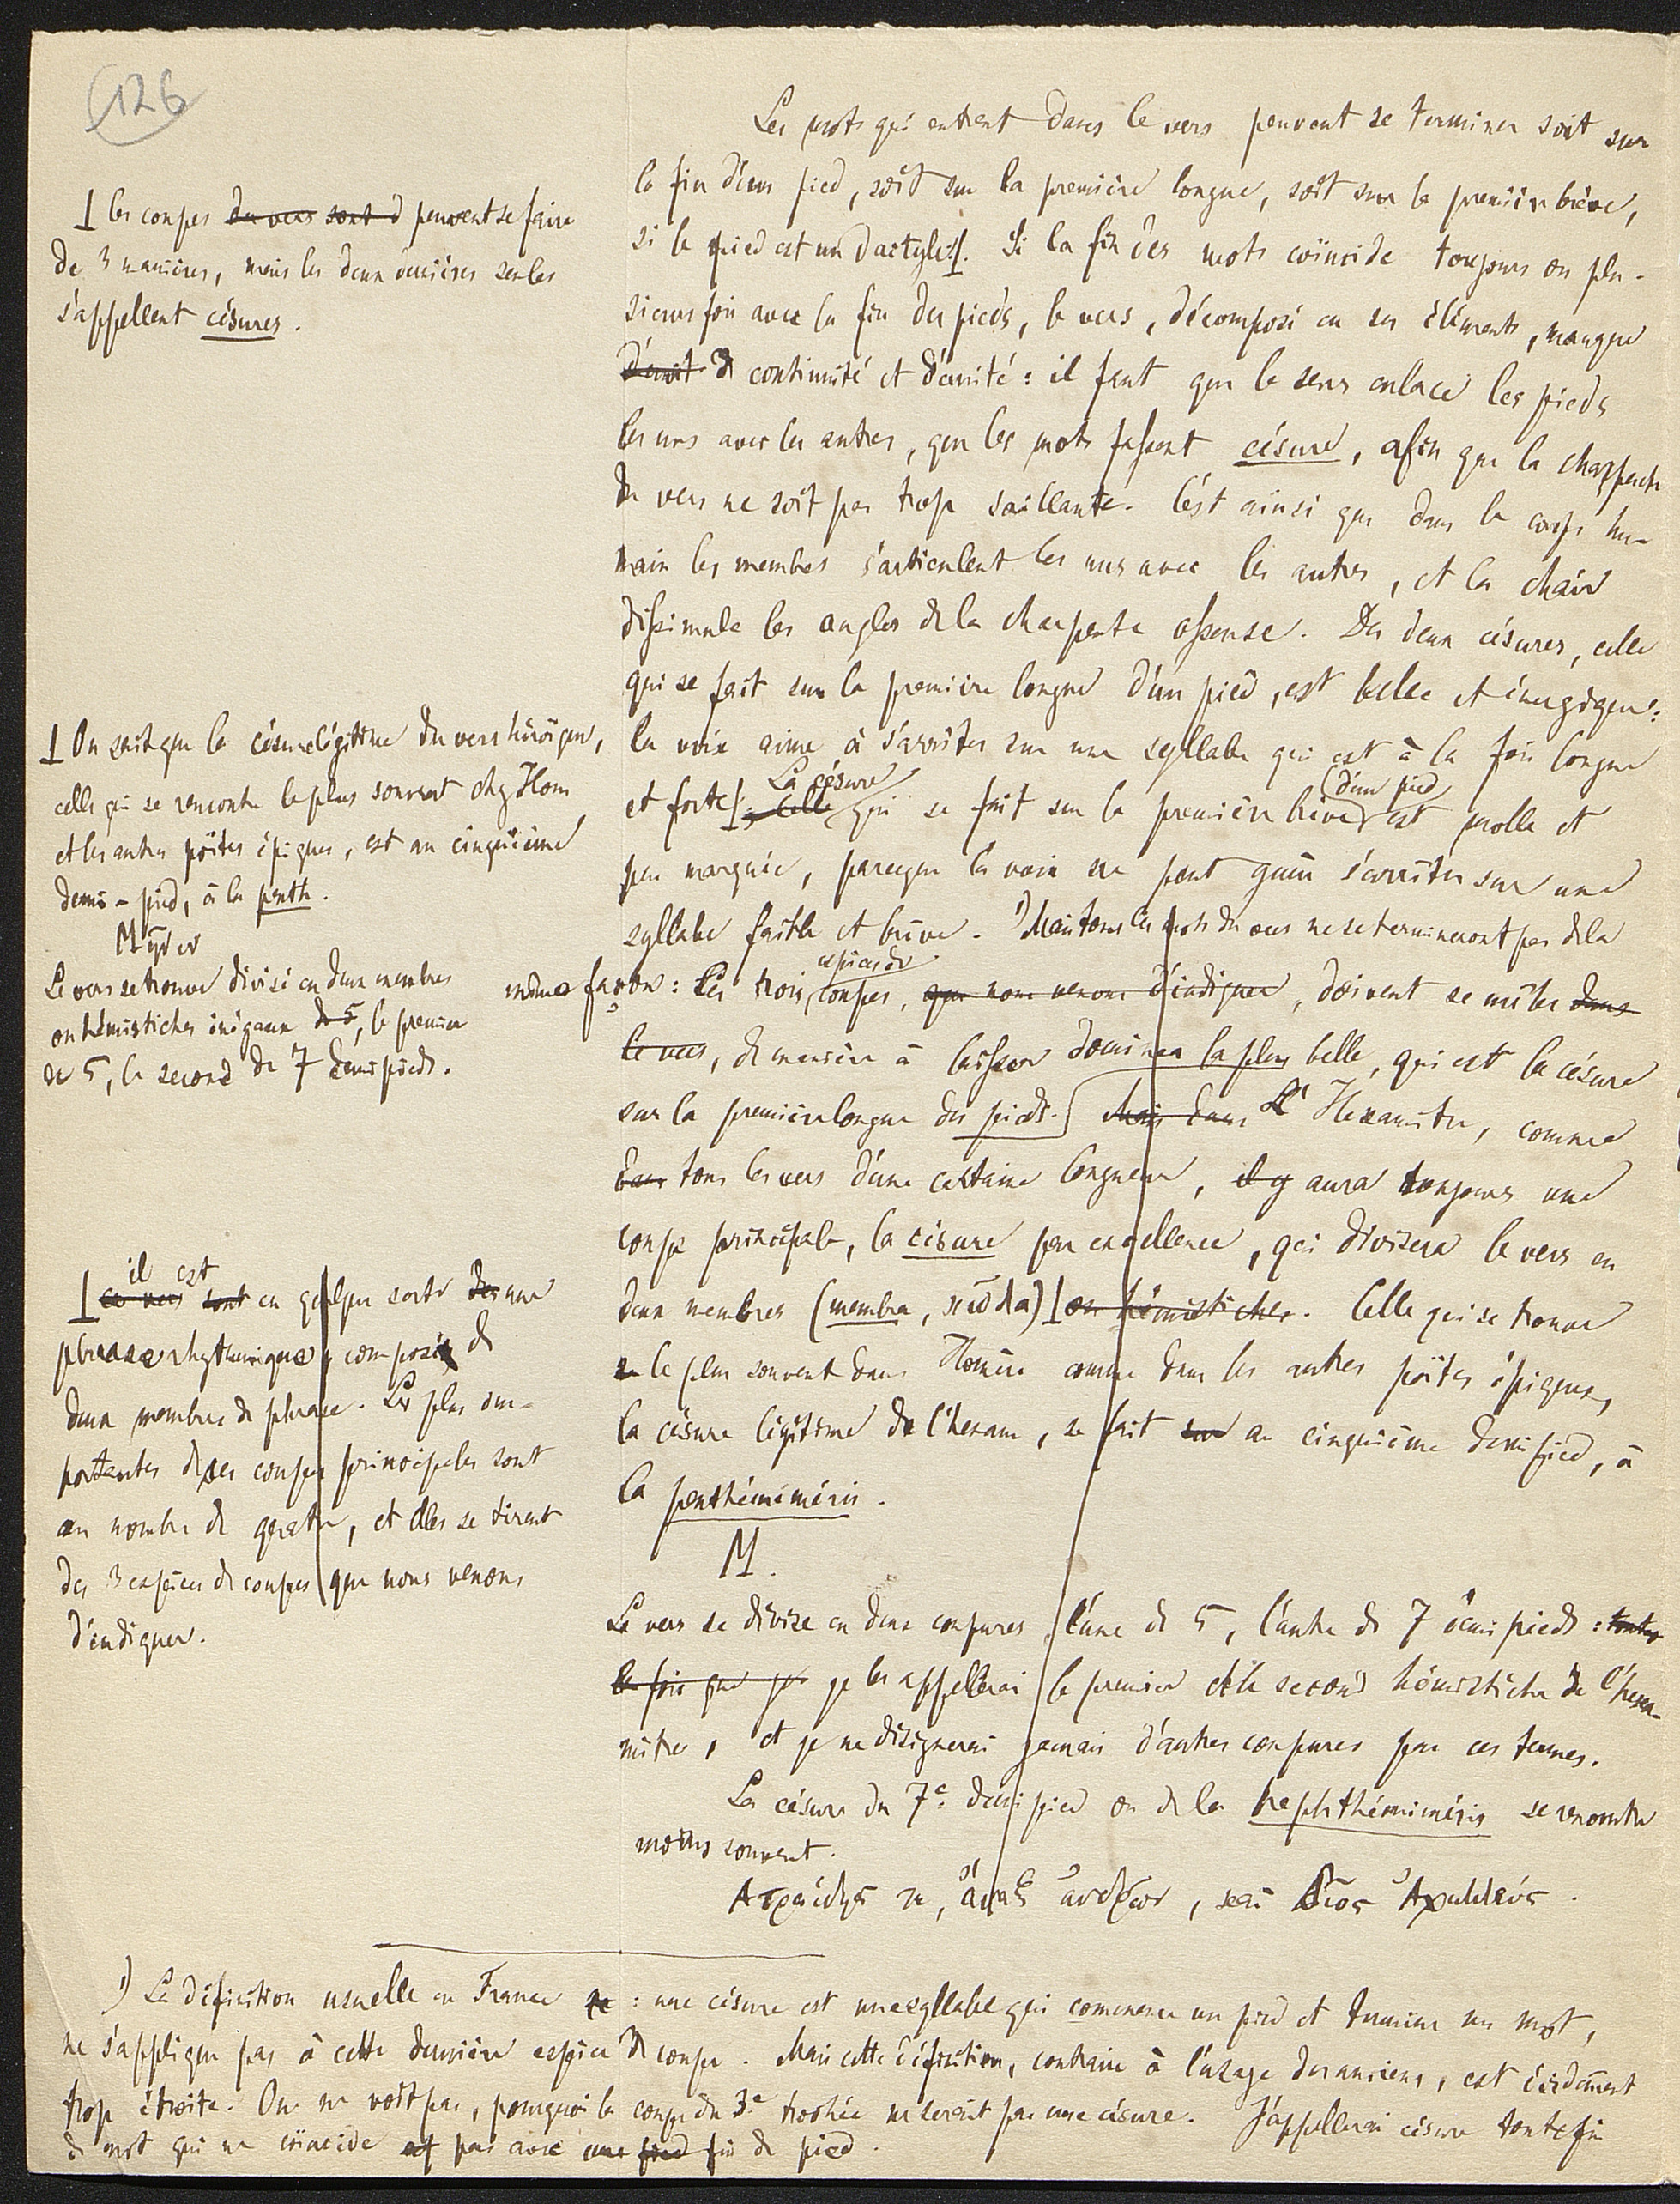 126
Les mots qui entrent dans le vers peuvent se terminer soit sur
la fin d'un pied, soit sur la première longue, soit sur la première brève,
si le pied est un dactyle. Si la fin des mots coïncide toujours ou plu-
sieurs fois avec la fin des pieds, le vers, décomposé en ses éléments, manque
d'unité de continuité et d'unité : il faut que le sens enlace les pieds
les uns avec les autres, que les mots fassent césure, afin que la charpente
du vers ne soit pas trop saillante. C'est ainsi que dans le corps hu-
main les membres s'articulent les uns avec les autres, et la chair
dissimule les angles de la charpente osseuse. Des deux césures, celle
qui se fait sur la première longue d'un pied, est belle et énergique :
la voix aime à s'arrêter sur une syllabe qui est à la fois longue
et forte ; celle La césure qui se fait sur la première brève d'un pied est molle et
peu marquée, parceque la voix ne peut guère s'arrêter sur une
syllabe faible et brève. 1) Mais tous les mots du vers ne se termineront pas de la
même façon : Les trois espèces de coupes, que nous venons d'indiquer, doivent se mêler dans
le vers, de manière à laisser dominer la plus belle, qui est la césure
sur la première longue des pieds. Mais dans L'Hexamètre, comme
dans tous les vers d'une certaine longueur, il y aura toujours une
coupe principale, la césure par excellence, qui divisera le vers en
deux membres (membra, κῶλα) ou hémistiches. Celle qui se trouve
le plus souvent dans Homère comme dans les autres poëtes épiques,
la césure légitime de l'hexam, se fait sur au cinquième demi pied, à
la penthémiméris.
M.
Le vers se divise en deux coupures, l'une de 5, l'autre de 7 demi pieds : toutes
les fois que je je les appellerai le premier et le second hémistiche de l'hexa-
mètre, et je ne désignerai jamais d'autres coupures par ces termes.
La césure du 7e demi pied ou de la hephthémiméris se rencontre
moins souvent.
Ἀτρείδης τε, ἄναξ ἀνδρῶν, καὶ δῖος Ἀχιλλεύς.
⊥ les coupes du vers sont d peuvent se faire
de 3 manières, mais les deux dernières seules
s'appellent césures.
⊥ On sait que la césure légitime du vers héroïque,
celle qui se rencontre le plus souvent chez Hom
et les autres poëtes épiques, est au cinquième
demi-pied, à la penth.
Le vers se trouve divisé en deux membres
ou hémistiches inégaux de 5, le premier
de 5, le second de 7 demi pieds.
⊥ ce vers sont il est en quelque sorte des une
phrase rhythmique, composée de
deux membres de phrase. Les plus im-
portantes de ces coupes principales sont
au nombre de quatre, et elles se tirent
des 3 espèces de coupes que nous venons
d'indiquer.
1) La définition usuelle en France : une césure est une syllabe qui commence un pied et termine un mot,
ne s'applique pas à cette dernière espèce de coupe. Mais cette définition, contraire à l'usage des anciens, est évidemment
trop étroite. On ne voit pas, pourquoi la coupe du 3e trochée ne serait pas une césure. J'appellerai césure toute fin
de mot qui ne coïncide pas avec une pied fin de pied.